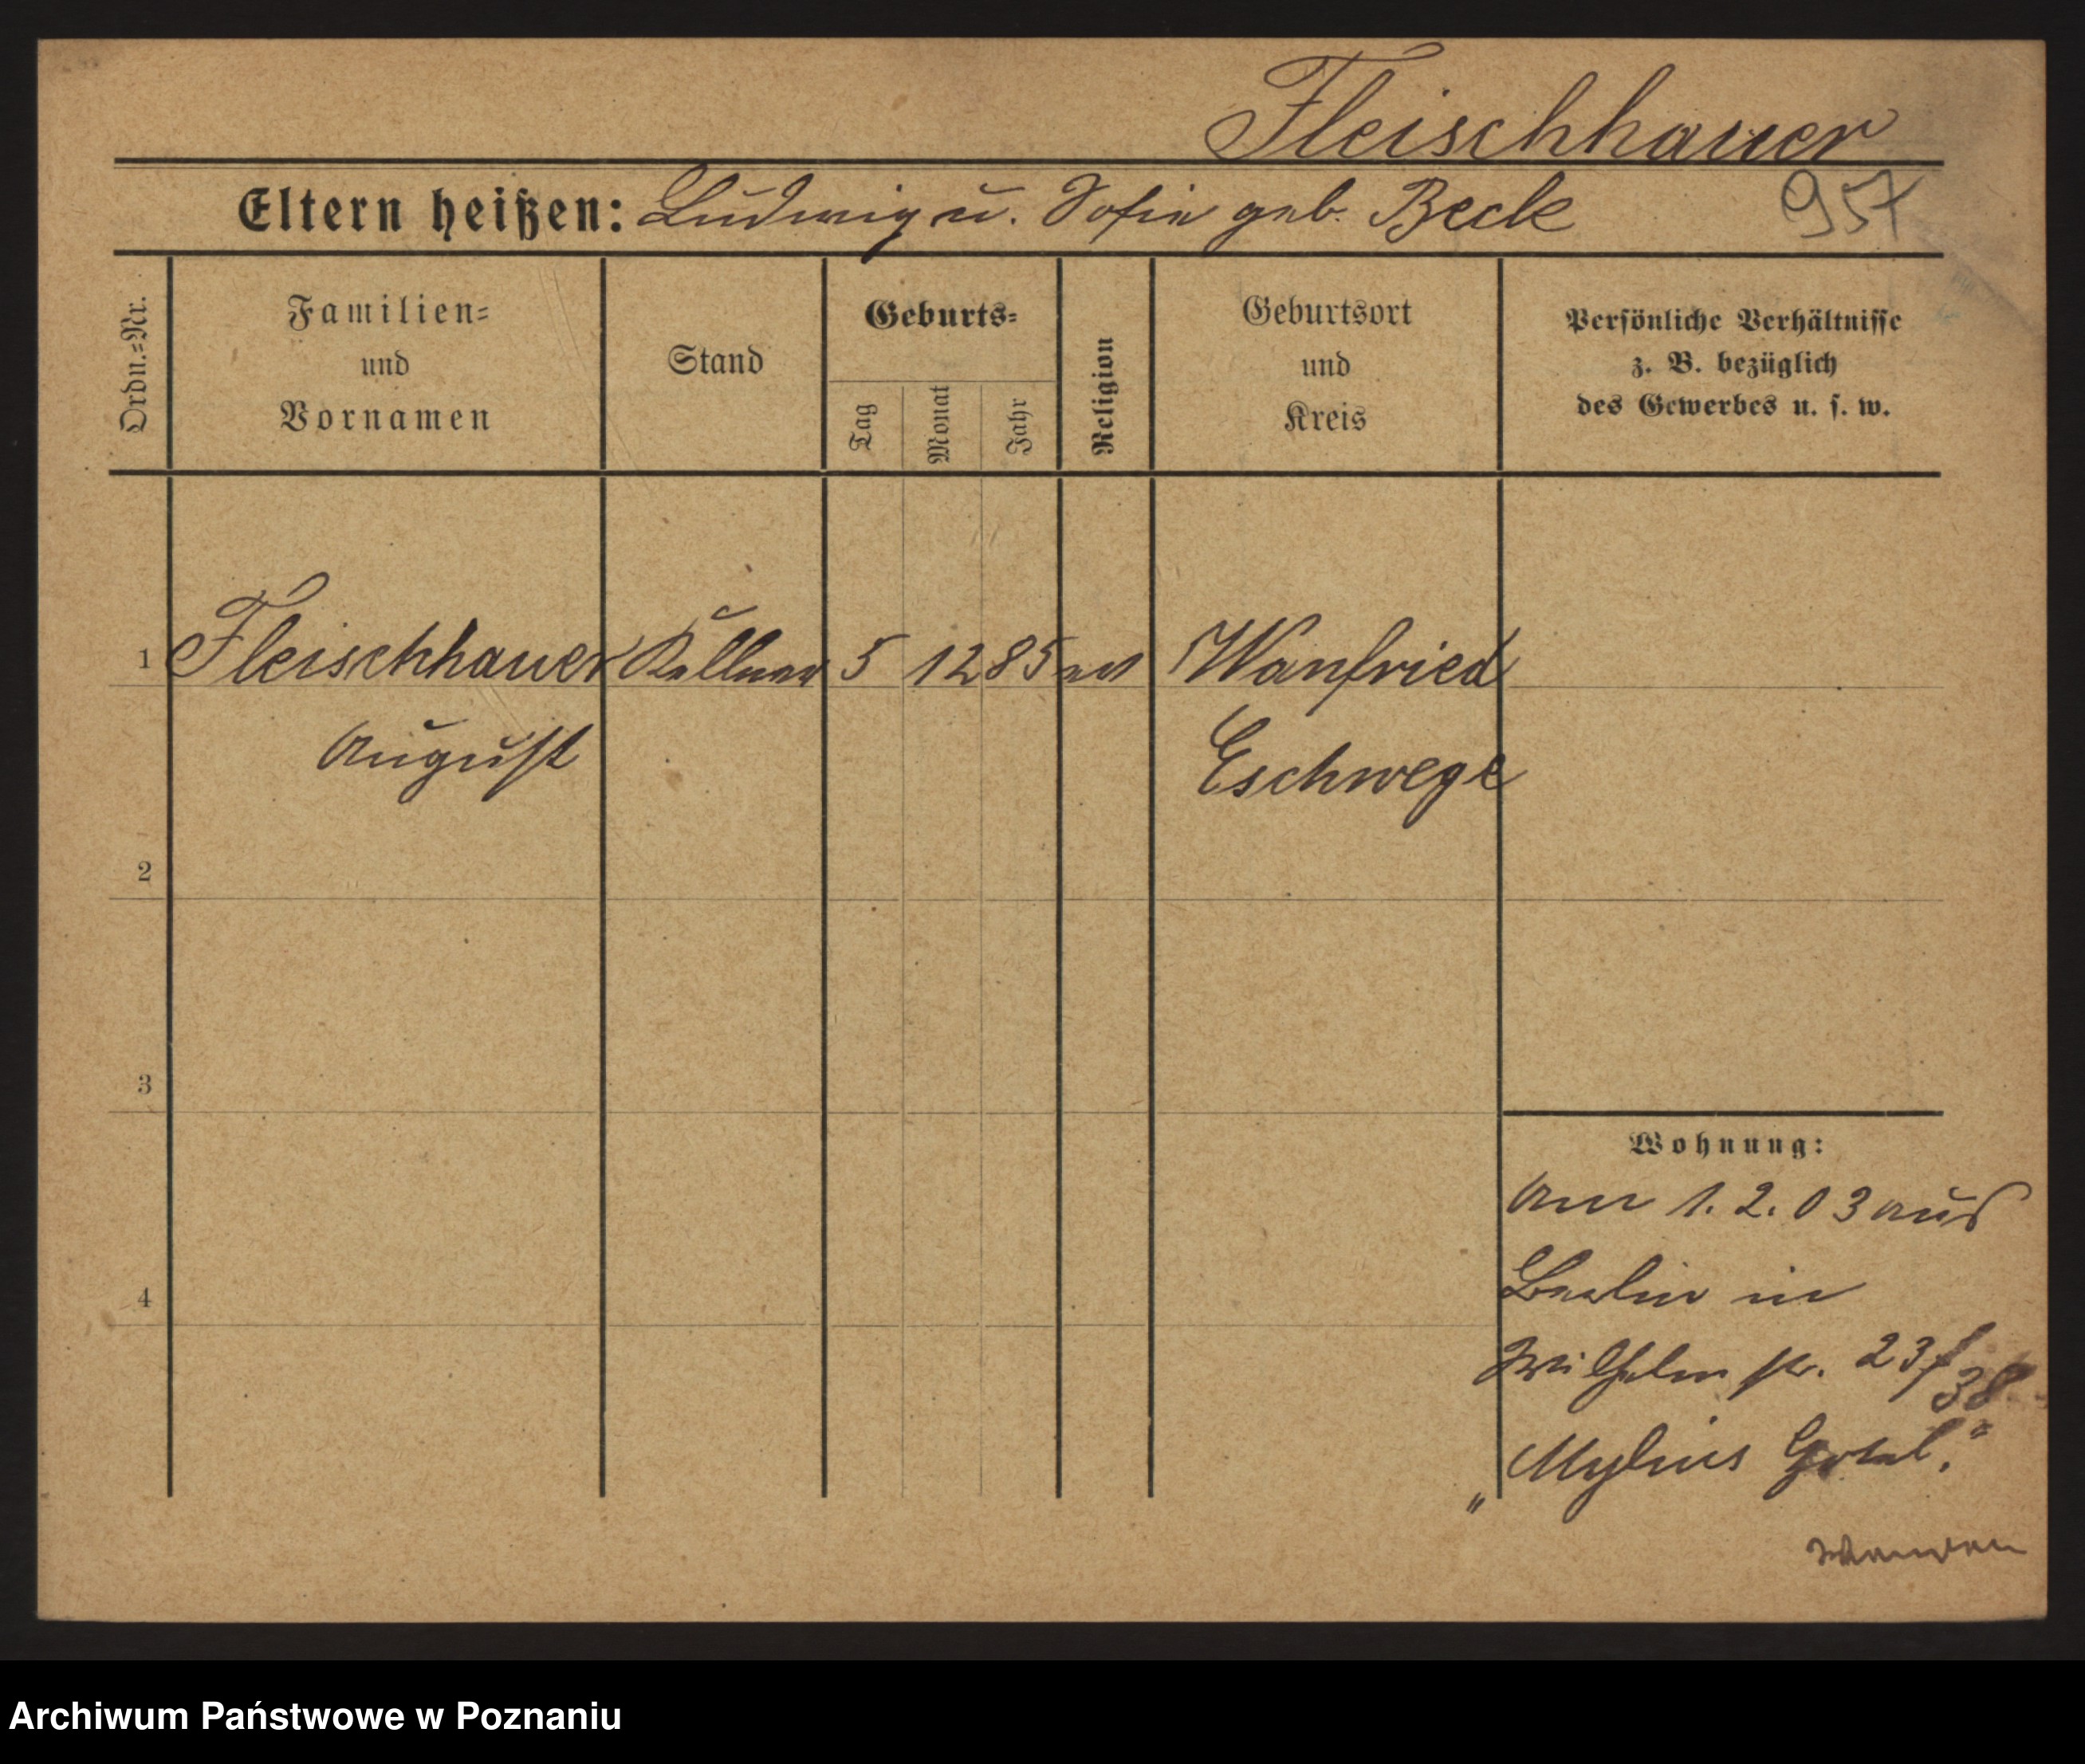 Fleischhauer
Eltern heißen: Ludwig u. Sofie geb. Beck 957
Ordn.=Nr. Familien= und Vornamen Stand Geburts= Tag Monat Jahr Religion Geburtsort und Kreis Persönliche Verhältnisse z. B. bezüglich des Gewerbes u. s. w.
1 Fleischhauer Kellner 5 12 85 ev Wanfried
August Eschwege
2
3
Wohnung:
Am 1. 2. 03 aus
4
Berlin in
Wilhelmstr. 23/
38
„Mylius Hotel."
Archiwum Państwowe w Poznaniu